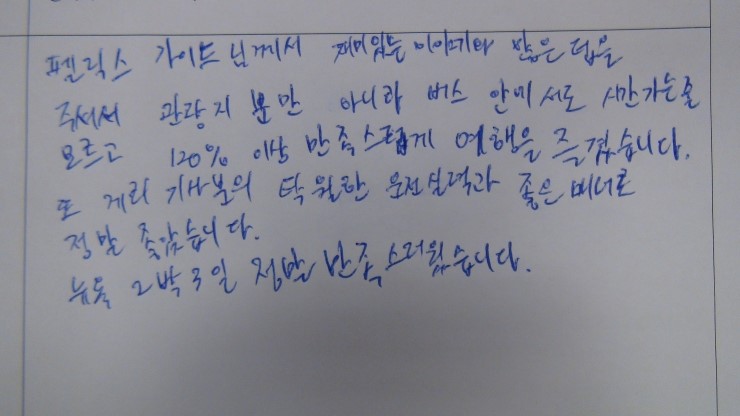 펠릭스 가이드님께서 재미있는 이야기와 많은 팁을
주셔서 관광지 뿐만 아니라 버스 안에서도 시간가는줄
모르고 120% 이상 만족스럽게 여행을 즐겼습니다.
또 게리 기사분의 탁월한 운전실력과 좋은 매너로
정말 좋았습니다.
뉴욕 2박3일 정말 만족스러웠습니다.